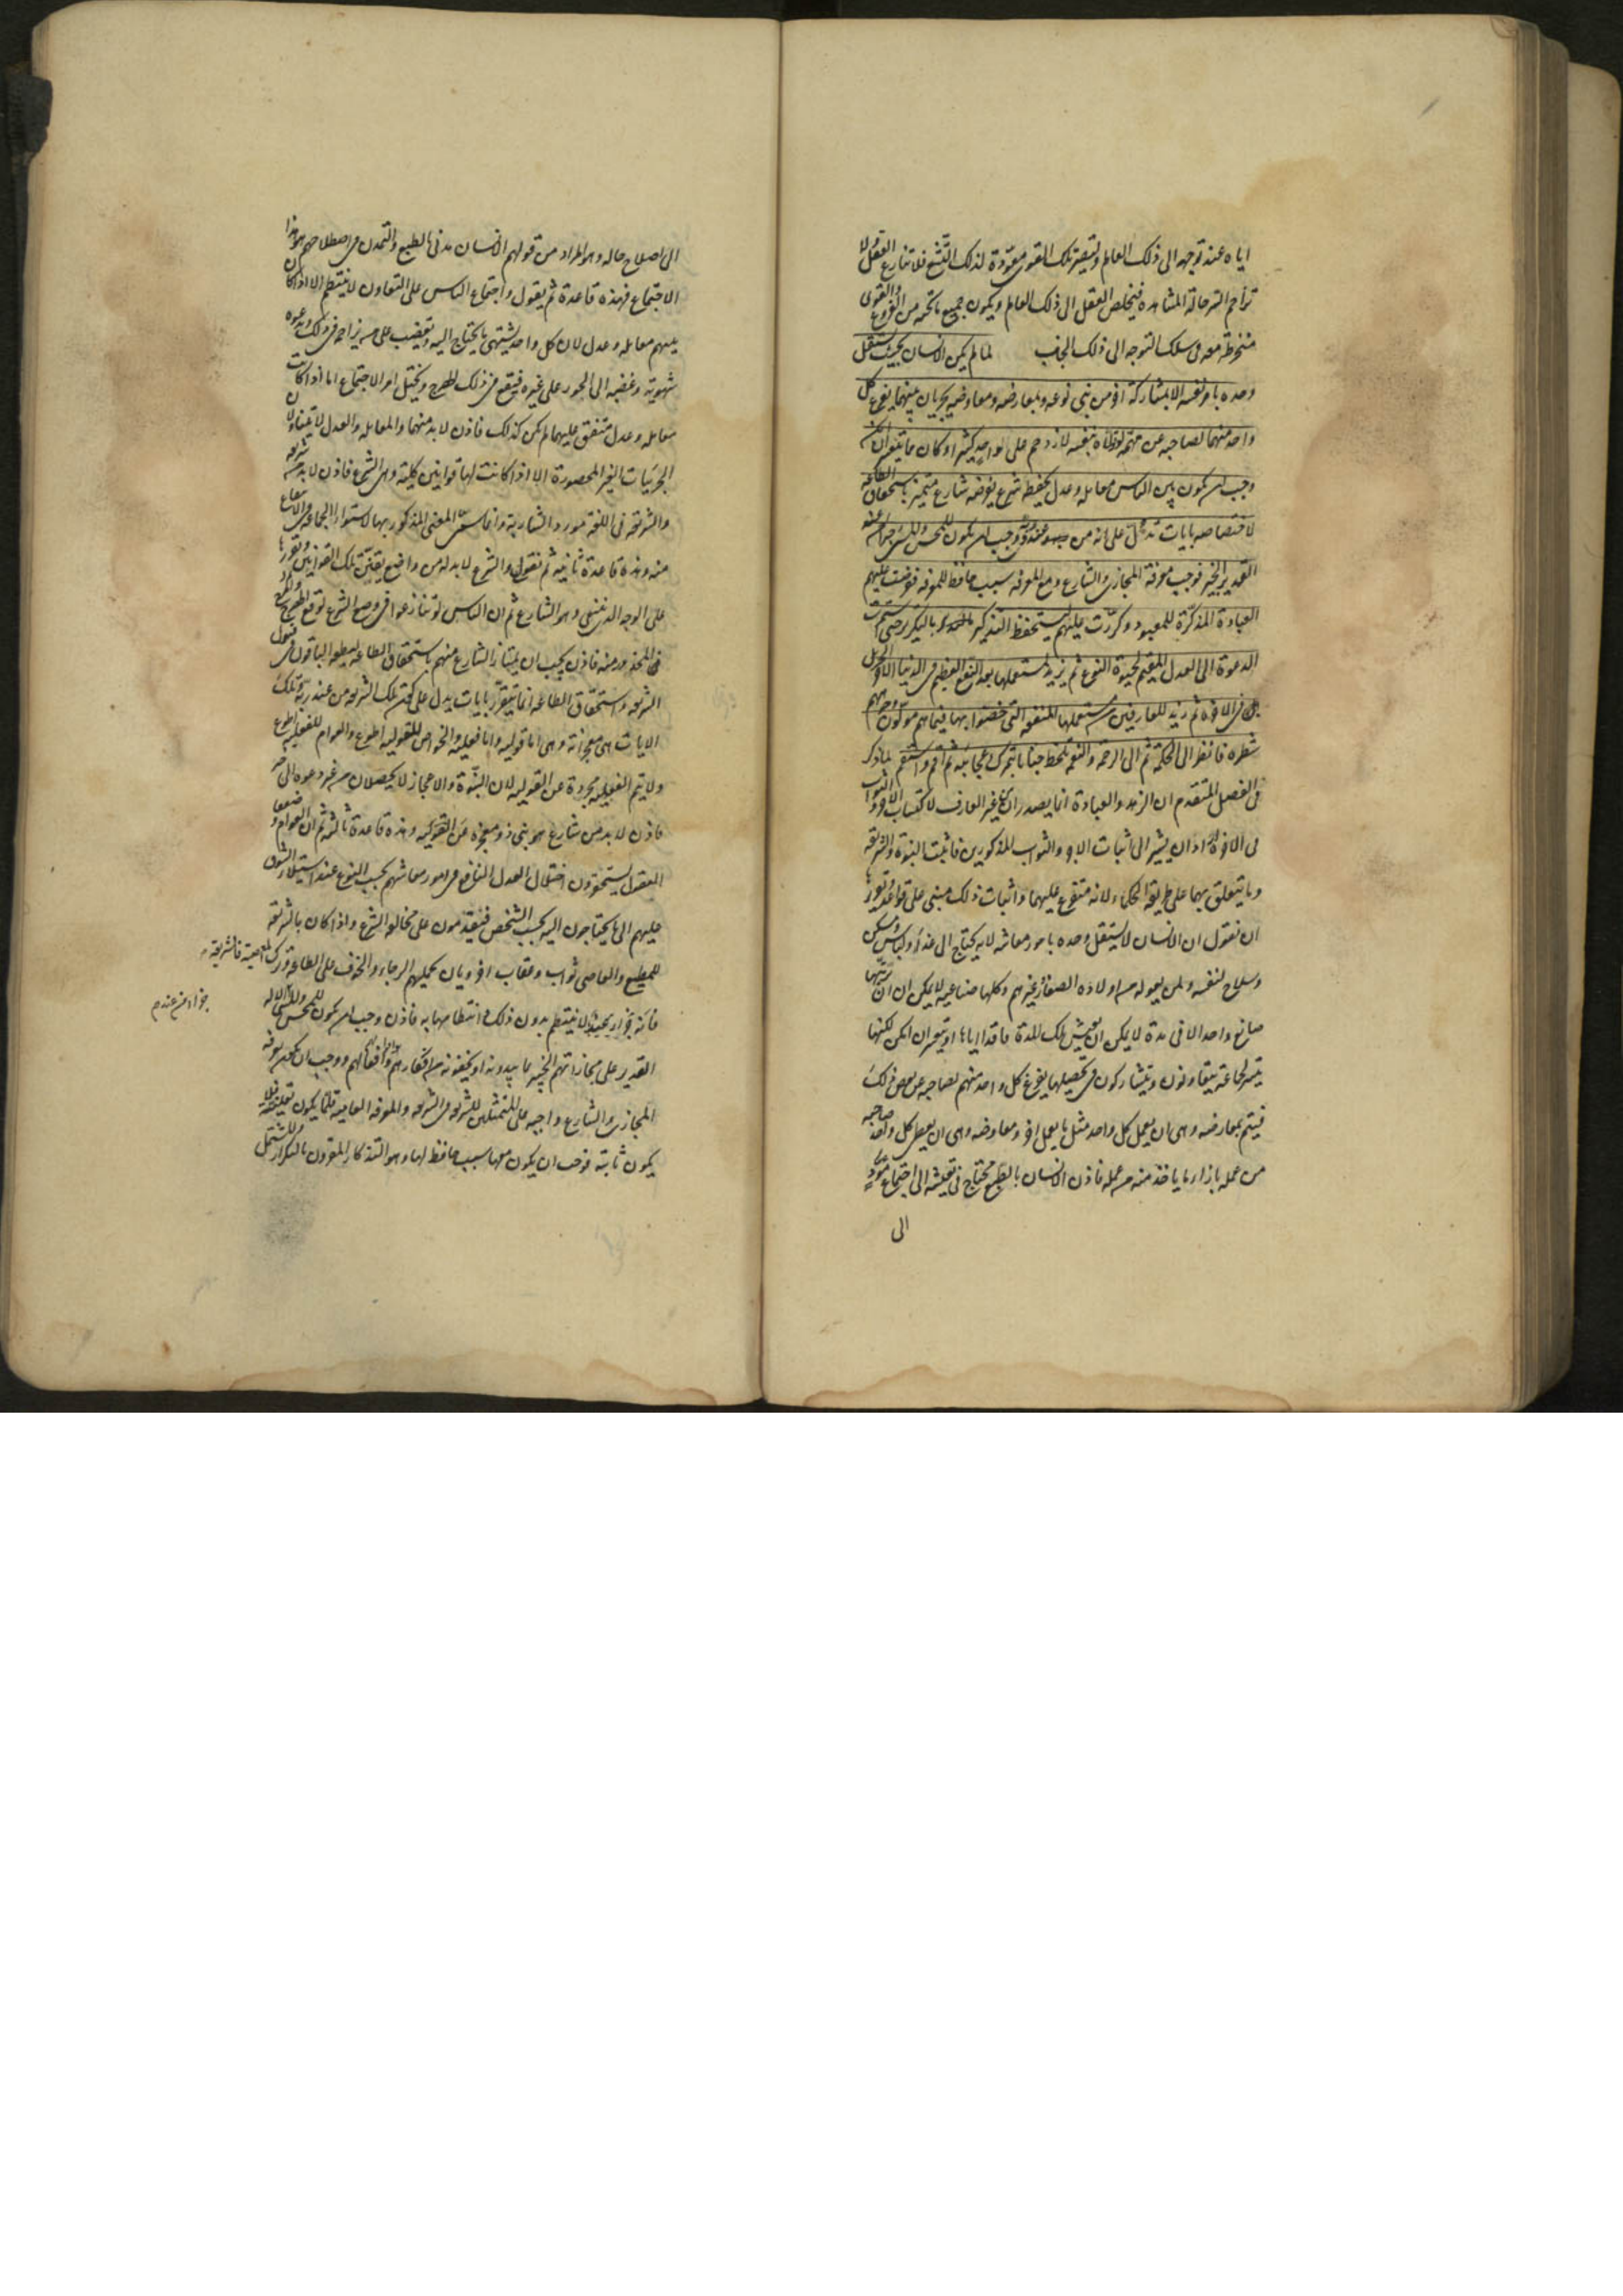 اياه عند توجهه الى ذلك العالم وتصير تلك القوى معوّدة لذلك التشيع فلا تنازع العقل ولا
تزاحم السر حالة المشاهدة فيخلص العقل الى ذلك العالم ويكون جميع ما تحته من الفروع والقوى
منخرطة معه فى سلك التوجه الى ذلك الجانب لما لم يكن الانسان بحيث يستقل
وحده بامر نفسه الا بمشاركة اخر من بنى نوعه وبمعارضه ومعاوضه يجريان بينهما يفرغ كل
واحد منهما لصاحبه عن مهم لو تولاه بنفسه لازدحم على الواحد كثير او كان مما يتعسر ان امكن
وجب ان يكون بين الناس معامله وعدل يحفظه شرع يفرضه شارع متميز باستحقاق الطاعه
لاختصاصه بايات تدل على انه من عند ربه ووجب ان يكون للمحسن وللمسىء جزاء من عند
القدير الخبير فوجب معرفة المجازى والشارع ومع المعرفه سبب حافظ للمعرفه ففرضت عليهم
العبادة المذكرة للمعبود وكررت عليهم ليستحفظ التذكير بالتكرير حتى استمرت
الدعوة الى العدل المقيم لحيوة النوع ثم يزيد لمستعمليها بعد النفع العظيم فى الدنيا الاجر الجزيل
فى الاخرة ثم زيد للعارفين من مستعمليها المنفعه التى خصّوا بها فيما هم مولّون وجوههم
شطره فانظر الى الحكمة ثم الى الرحمة والنعمه تلحظ جنابا تبهرك عجائبه ثم اقم واستقم لما ذكر
فى الفصل المتقدم ان الزهد والعبادة انما يصدران عن غير العارف لاكتساب الاجر والثواب
فى الاخرة اراد ان يشير الى اثبات الاجر والثواب المذكورين فاثبت النبوة والشريعة
وما يتعلق بهما على طريقة الحكماء لانه متفرع عليهما واثبات ذلك مبنى على قواعد تقريرها
ان نقول ان الانسان لا يستقل وحده بامور معاشه لانه يحتاج الى غذاء ولباس ومسكن
وسلاح لنفسه ولمن يعوله من اولاده الصغار وغيرهم وكلها صناعيه لا يمكن ان يرتبها
صانع واحد الا فى مدة لا يمكن ان يعيش تلك المدة فاقدا اياها او يتعسر ان امكن لكنها
تتيسر لجماعة يتعاونون ويتشاركون فى تحصيلها يفرغ كل واحد منهم لصاحبه عن بعض ذلك
فيتم بمعارضه وهى ان يعمل كل واحد مثل ما يعمل اخر ومعاوضه وهى ان يعطى كل واحد صاحبه
من عمله بازاء ما ياخذ منه من عمله فاذن الانسان بالطبع محتاج فى تعيشه الى اجتماع مؤدٍ
الى
الى اصلاح حاله وهو المراد من قولهم الانسان مدنى بالطبع والتمدن فى اصطلاحهم هو هذا
الاجتماع فهذه قاعدة ثم يقول واجتماع الناس على التعاون لا ينتظم الا اذا كان
بينهم معامله وعدل لان كل واحد يشتهى ما يحتاج اليه ويغضب على من يزاحمه فى ذلك وتدعوه
شهوته وغضبه الى الجور على غيره فيقع من ذلك الهرج ويختل امر الاجتماع اما اذا كانت
معامله وعدل متفق عليهما لم يكن كذلك فاذن لا بد منهما والمعامله والعدل لا يتناولان
الجزئيات الغير المحصورة الا اذا كانت لها قوانين كلية وهى الشرع فاذن لا بد من شريعه
والشريعة فى اللغة مورد الشاربة وانما سمى المعنى المذكور بها لاستواء الجماعه فى الانتفاع
منه وهذه قاعدة ثانيه ثم نقول والشرع لا بد له من واضع يقنّن تلك القوانين ويقررها
على الوجه الذى ينبغى وهو الشارع ثم ان الناس لو تنازعوا فى وضع الشرع لوقع الهرج
المحذور منه فاذن يجب ان يمتاز الشارع منهم باستحقاق الطاعه ليطيعه الباقون فى قبول
الشريعه واستحقاق الطاعه انما يتقرر بايات يدل على كون تلك الشريعه من عند ربه وتلك
الايات هى معجزاته وهى اما قوليه واما فعليه والخواص للقوليه اطوع والعوام للفعليه اطوع
ولا يتم الفعليه مجردة عن القوليه لان النبوّة والاعجاز لا يحصلان من غير دعوه الى خير
فاذن لا بد من شارع هو نبى ذو معجزه وهذه قاعدة ثالثه ثم ان العوام وضعفاء
العقول يستحقرون اختلال العدل النافع فى امور معاشهم بحسب النوع عند استيلاء الشوق
عليهم الى ما يحتاجون اليه بحسب الشخص فيقدمون على مخالفه الشرع واذا كان بالشريعه
للمطيع والعاصى ثواب وعقاب اخرويان يحملهم الرجاء والخوف على الطاعه وترك المعصية فالشريعه
لا ينتظم بدون ذلك انتظامها به فاذن وجب ان يكون للمحسن وللمسىء
جزاء من عند
القدير على مجازاتهم الخبير بما يبدونه او يخفونه من افكارهم وافعالهم ووجب ان يكون معرفه
المجازى والشارع واجبه على الممتثلين للشريعه فى الشريعه والمعرفه العاميه قلما يكون يقينيه فلا
يكون ثابتة فوجب ان يكون معها سبب حافظ لها وهو التذكار المقرون بالتكرار المشتمل